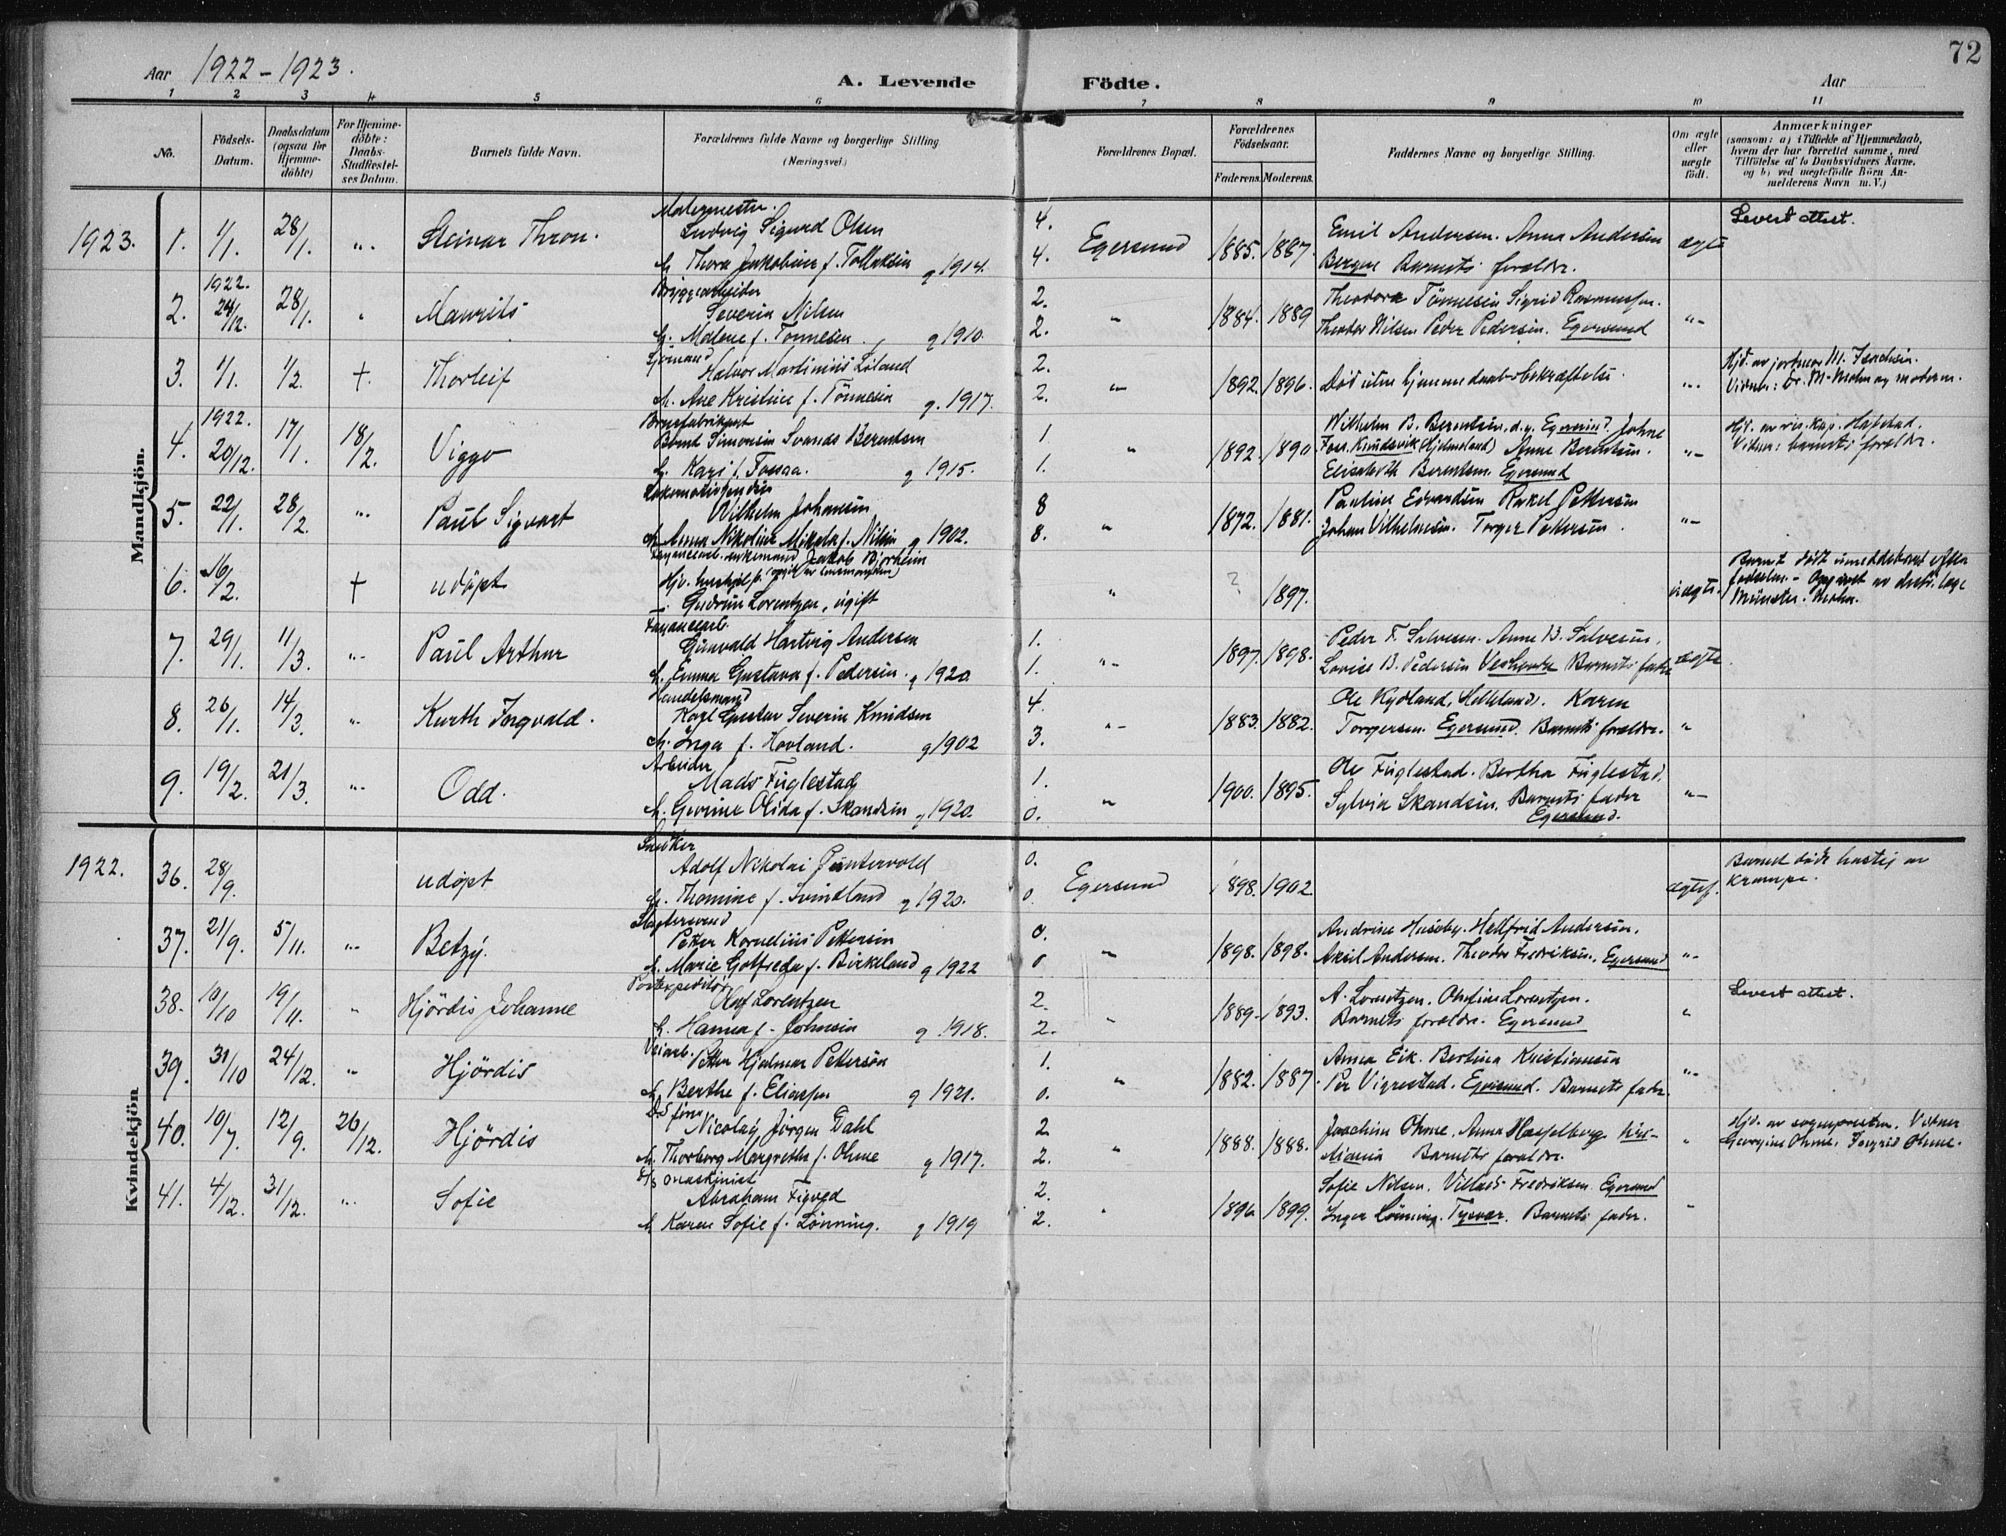 72
Aar 1922-1923.
A. Levende Födte.
Aar
1 2 3 4 5 6 7 8 9 10 11
No.
Födsels-Datum.
Daabsdatum (ogsaa for Hjemme-döbte)
For Hjemme-döbte: Daabs-Stadfæstel-ses Datum.
Barnets fulde Navn.
Forældrenes fulde Navne og borgerlige Stilling
(Næringsvei.)
Forældrenes Bopæl.
Forældrenes Födselsaar.
Faderens. Moderens.
Faddernes Navne og borgerlige Stilling.
Om ægte eller uægte födt.
Anmærkninger
(saasom: a) i Tilfælde af Hjemmedaab,
hvem der har forrettet samme, med
Tilföielse af to Daabsvidners Navne,
og b) ved uægtefödte Börn An-
melderens Navn m. V.)
Mandkjön.
1923. 1. 1/1. 28/1. "- Steinar Thron.
Malermester.
Ludvig Sigurd Olsen
h. Thora Jakobine f. Tollaksen g 1914.
4. 4. Egersund 1885. 1887.
Emil Andersen. Anna Andersen
Bergen Barnets foreldre.
ægte
Levert attest.
2. 1922. 24/12. 28/1. " Maurits
Bryggearbeider
Severin Nilsen
h. Malene f. Tønnesen g 1910.
2. 2. " 1884. 1889
Theodora Tønnesen Sigrid Rasmussen.
Theodor Nilsen Peder Pedersen. Egersund
"-
3. 1/1. 1/2. +. Thorleif
Sjømand
Halvor Martinius Liland
h. Ane Kristine f. Tønnesen g. 1917.
2. 2. "- 1892. 1896.
Død uten hjemmedaabsbekræftelse
"-
Hjd. av jordmor M. Isachsen.
Vidner: Dr. M-Mohn og moderen.
4. 1922. 20/12. 17/1. 18/2. Viggo
Brusfabrikant
Bernt Simonsen Svanes Berentsen
h. Kari f. Fossaa. g 1915.
1. 1. " 1892. 1890
Wilhelm B. Berentsen, d.y. Egersund. Johne
Foss. Knudsvik (Hjelmeland) Anne Berentsen.
Elisabeth Berentsen. Egersund
"-
Hjd. av res. kap. Hafstad.
Vidner: barnets foreldre.
5. 22/1. 28/2. "- Paul Sigvart
Lokomotivfører
Wilhelm Johansen
h. Anna Nikoline Mikala f. Nilsen g 1902.
8 8. " 1872. 1881.
Pauline Edvardsen Rakel Pettersen
Johan Vilhelmsen. Torger Pettersen.
"-
6. 16/2. + udøpt
Fayancearb. enkemand Jakob Bjorheim
Hjv. hushjelp
Gudrun Lorentzen, ugift
" ? 1897.
uægte.
Barnet dødt umiddelbart efter
fødselen. - Opgivet av distr. læge
Münster. Mohn.
7. 29/1. 11/3. "- Paul Arthur
Fayancearb.
Gunvald Hartvig Andersen
h. Emma Gustava f. Pedersen. g 1920
1. 1. "- 1897. 1898.
Peder F. Salvesen. Anne B. Salvesen.
Lovise B. Pedersen Barnets fader
ægte
8. 26/1. 14/3. "- Kurth Ingvald.
Handelsmand
Karl Gustav Severin Knudsen
h. Inga f. Hovland. g 1902
4. 3. "- 1883. 1882.
Ole Kydland, Helleland. Karen
Torgersen. Egersund. Barnets foreldre.
"
9. 19/2. 21/3. "- Odd.
Arbeider
Mads Fuglestad
h. Gerine Olida f. Skandsen g 1920.
1. 0. " 1900. 1895.
Ole Fuglestad. Bertha Fuglestad.
Sylvia Skandsen. Barnets fader
Egersund.
"-
Kvindekjön
1922. 36. 28/9. udøpt
Snekker
Adolf Nikolai Puntervold
h. Thomine f. Svindland g 1920.
0. 0. Egersund 1898. 1902
ægtef.
Barnet døde hastig av
krampe.
37. 21/9. 5/11. "- Betzy.
Slagtersvend
Petter Kornelius Pettersen
h. Marie Gotfreda f. Birkeland g 1922
0. 0 " 1898. 1898.
Andrine Huseby. Hellfrid Andersen.
Aksel Andersen. Theodor Fredriksen. Egersund
"-
38. 10/10 19/11. " Hjördis Johanne
Postexpeditør
Olaf Lorentzen
h. Hanna f. Johnsen g 1918.
2. 2. " 1889. 1893.
A. Lorentzen. Olufine Lorentzen.
Barnets foreldre. Egersund
"
Levert attest.
39. 31/10 24/12. " Hjördis
Veiarb.
Petter Hjalmar Petterson
h. Berthe f. Eliassen g 1921.
1. 0. " 1882. 1887.
Anna Eik. Bertina Kristiansen
Per Vigrestad. Egersund. Barnets fader.
"-
40. 10/7. 12/9. 26/12. Hjördis
Nicolay Jörgen Dahl
h. Thorborg Margrethe f. Ohme g 1917.
2 2. " 1888. 1888.
Joachim Ohme, Anna Hasselberg Kri-
stiania Barnets foreldre.
"
Hjd. av sogneprsten. Vidner
Georgine Ohme, Ingrid Ohme.
41. 4/12. 31/12. "- Sofie
D/s maskinist
Abraham Figved
h. Karen Sofie f. Lönning. g 1919
2. 2. " 1896 1899.
Sofie Nilsen. Villads Fredriksen. Egersund
Inger Lönning. Tysvær. Barnets fader.
"